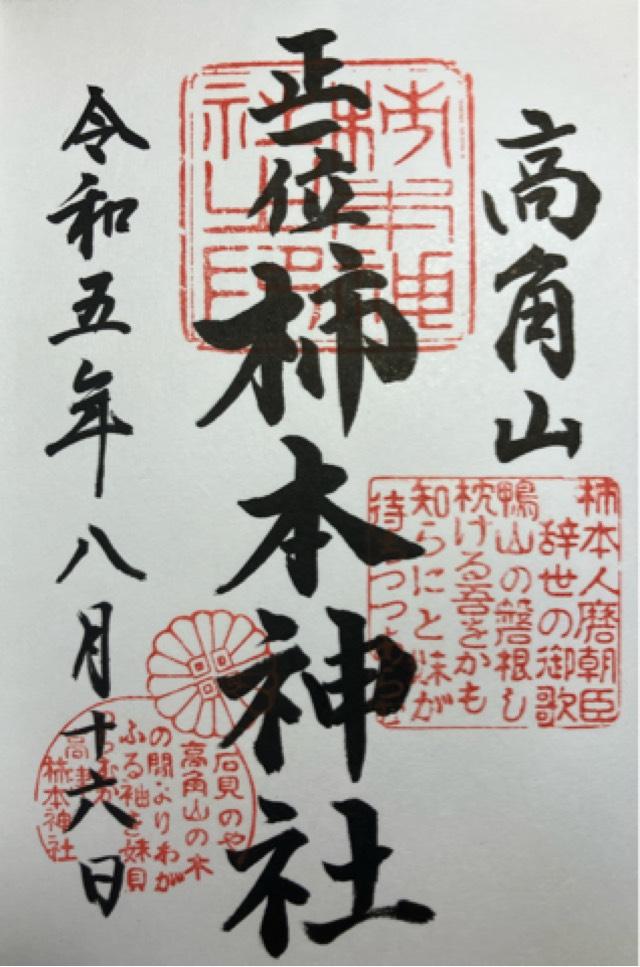 高角山
柿本人麿朝臣
辞世の御歌
鴨山の磐根し
枕ける吾をかも
知らにと妹が
待ちつつあらむ
正一位柿本神社
柿本神
社之印
令和五年八月十六日
石見のや
高角山の木
の間よりわが
ふる袖を妹見
らむか
高津
柿本神社